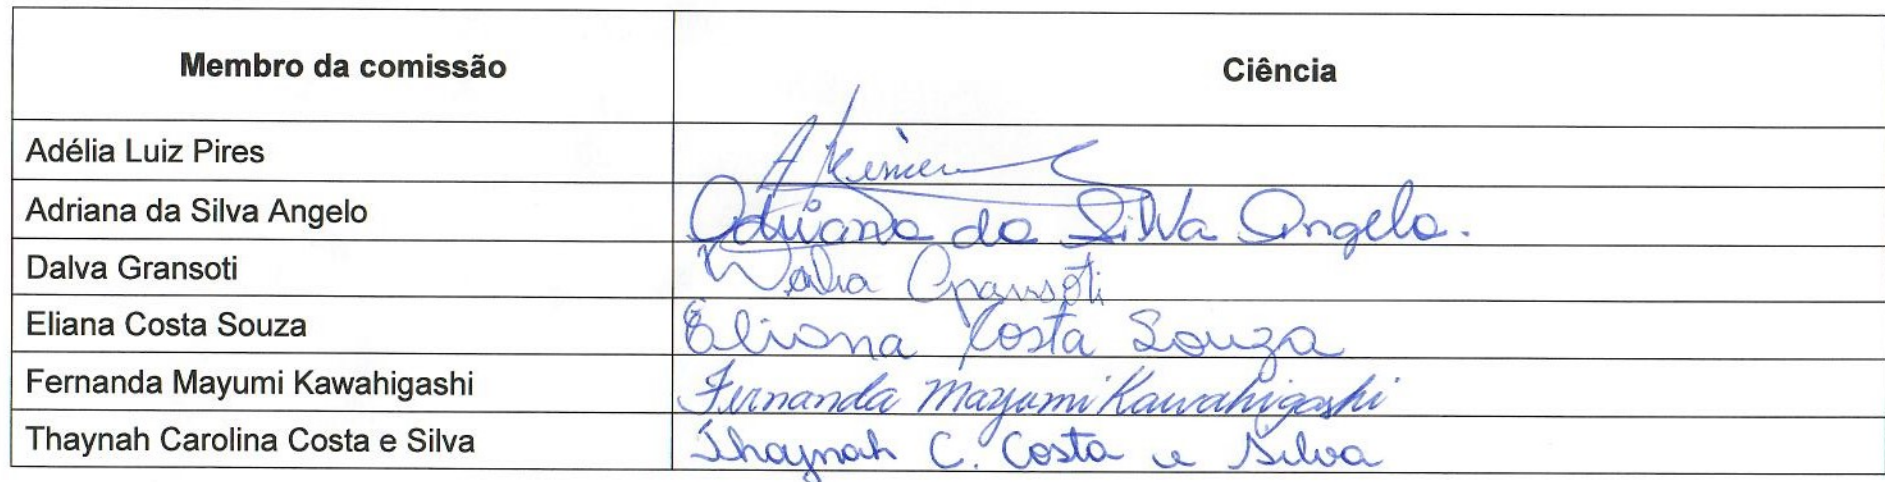 Membro da comissão Ciência
Adélia Luiz Pires
Adriana da Silva Angelo Adriana da Silva Angelo.
Dalva Gransoti Dalva Gransoti
Eliana Costa Souza Eliana Costa Souza
Fernanda Mayumi Kawahigashi Fernanda Mayumi Kawahigashi
Thaynah Carolina Costa e Silva Thaynah C. Costa e Silva